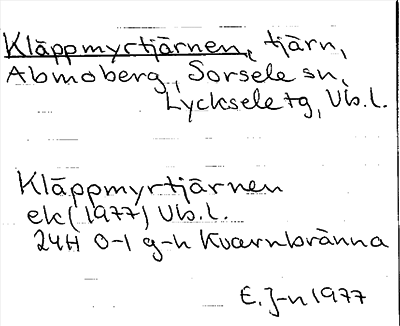 Kläppmyrtjärnen, tjärn,
Abmoberg, Sorsele sn,
Lycksele tg, Vb.l.
Kläppmyrtjärnen
ek (1977) Vb.l.
24H 0-1 g-h Kvarnbränna
E. J-n 1977